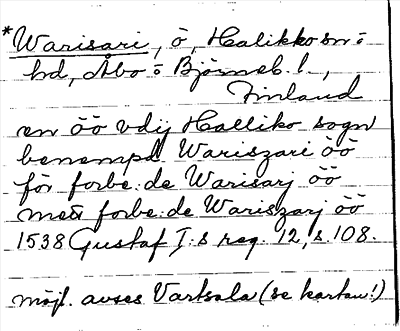 *Warisari, ö, Halikko sn o
hd, Åbo o Björneb. l.,
Finland
en öö vdij Halliko sogn
benempd Wariszari öö
för forbe:de Warisarj öö
med forbe:de Wariszarj öö
1538 Gustaf I:s reg. 12, s. 108.
möjl. avses Vartsala (se kartan!)